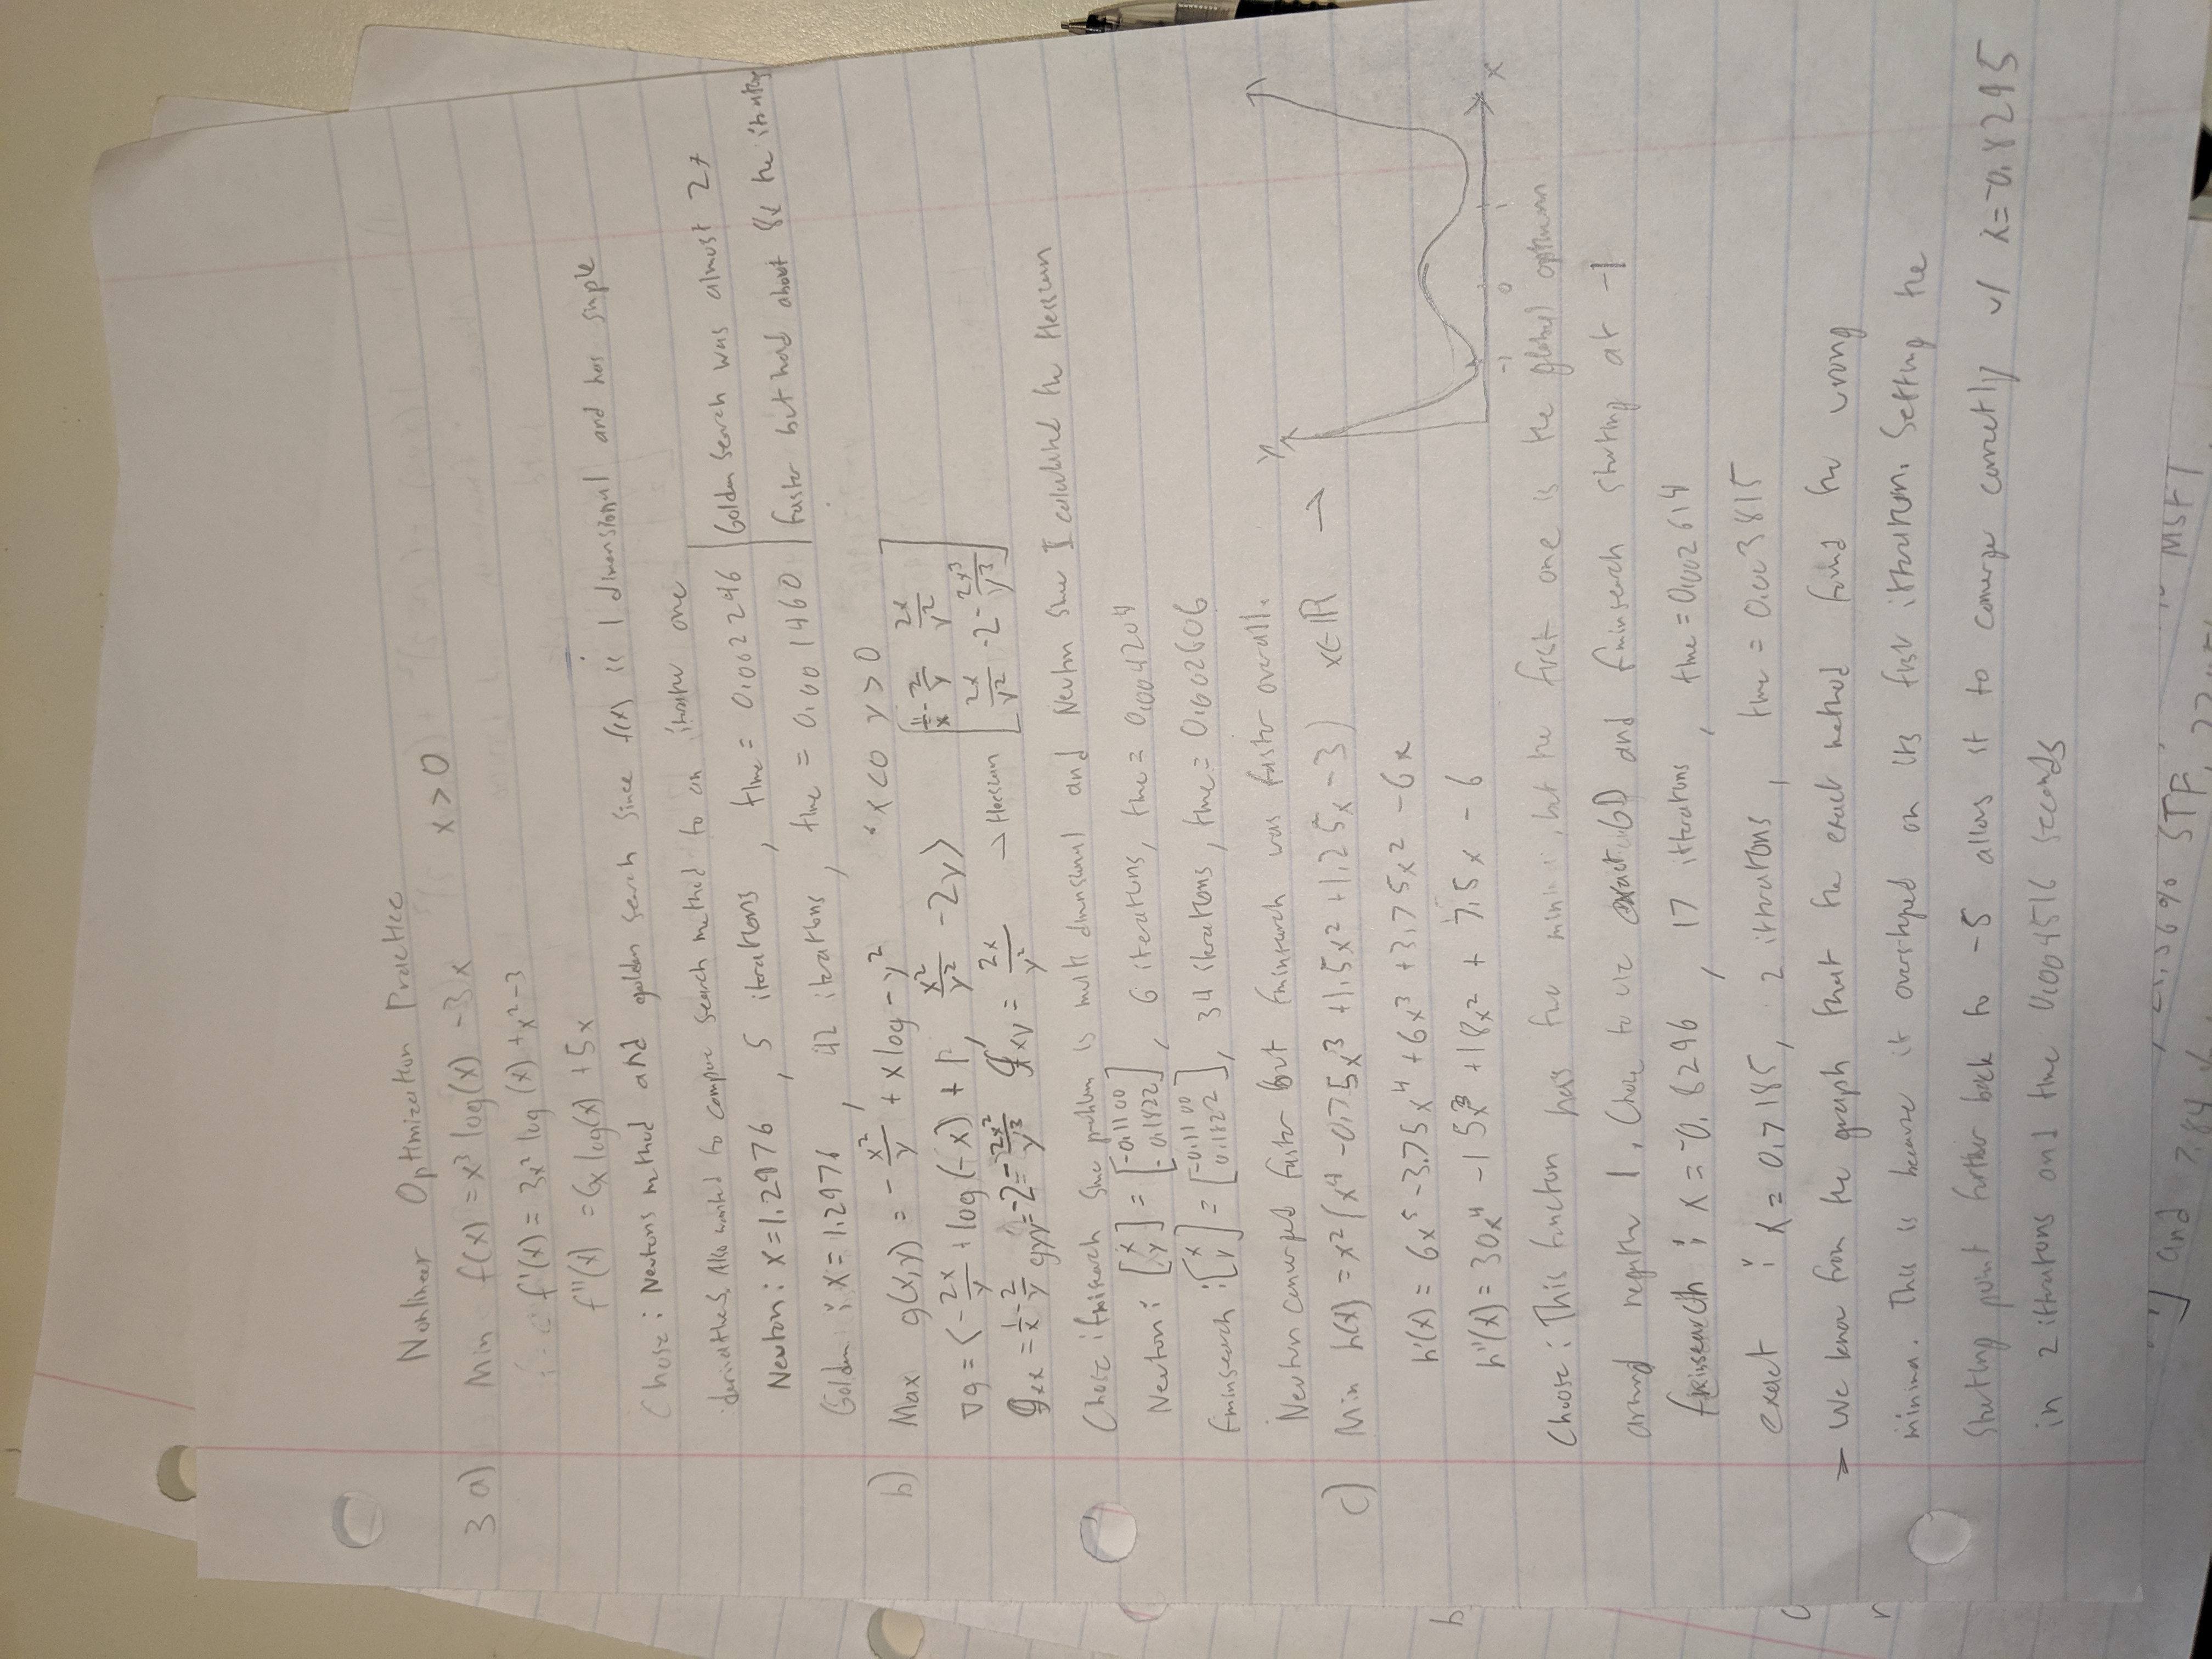 Nonlinear Optimization Practice
3 a) Min f(x) = x³ log(x) - 3x x > 0
f'(x) = 3x² log(x) + x² - 3
f''(x) = 6x log(x) + 5x
Chose: Newtons method and golden search since f(x) is 1 dimensional and has simple
derivatives. Also wanted to compare search method to an iterative one
Newton: x = 1.2976, 5 iterations, time = 0.002296 | Golden search was almost 2x
Golden: x = 1.2976, 42 iterations, time = 0.001460 | faster but had about 8x the iterations
b) Max g(x,y) = -x²/y + x log - y² x<0 y>0
∇g = <-2x/y + log(-x) + 1, x²/y² - 2y> [1/x - 2/y 2x/y²
gxx = 1/x - 2/y gyy = -2 - 2x²/y³ gxy = 2x/y² → Hessian 2x/y² -2 - 2x³/y³]
Chose: fminsearch since problem is multi dimensional and Newton since I calculated the Hessian
Newton: [x y] = [-0.1100 0.1822], 6 iterations, time = 0.004204
Fminsearch: [x y] = [-0.1100 0.1822], 34 iterations, time = 0.002606
Newton converged faster but fminsearch was faster overall.
c) Min h(x) = x²(x⁴ - 0.75x³ + 1.5x² + 1.25x - 3) x∈ℝ →
y
h'(x) = 6x⁵ - 3.75x⁴ + 6x³ + 3.75x² - 6x
h''(x) = 30x⁴ - 15x³ + 18x² + 7.5x - 6
-1 0 1 x
Choose: This function has two minima, but the first one is the global optimum
around negative 1. Chose to use exact GD and fminsearch starting at -1
fminsearch: x = -0.8296, 17 itterations, time = 0.002614
exact: x = 0.7185, 2 itterations, time = 0.003815
→ We know from the graph that the exact method found the wrong
minima. This is because it overstepped on its first itteration. Setting the
starting point further back to -5 allows it to converge correctly w/ x = -0.8295
in 2 itterations and time 0.004516 seconds
b
and 7.84 % STF, MSFT